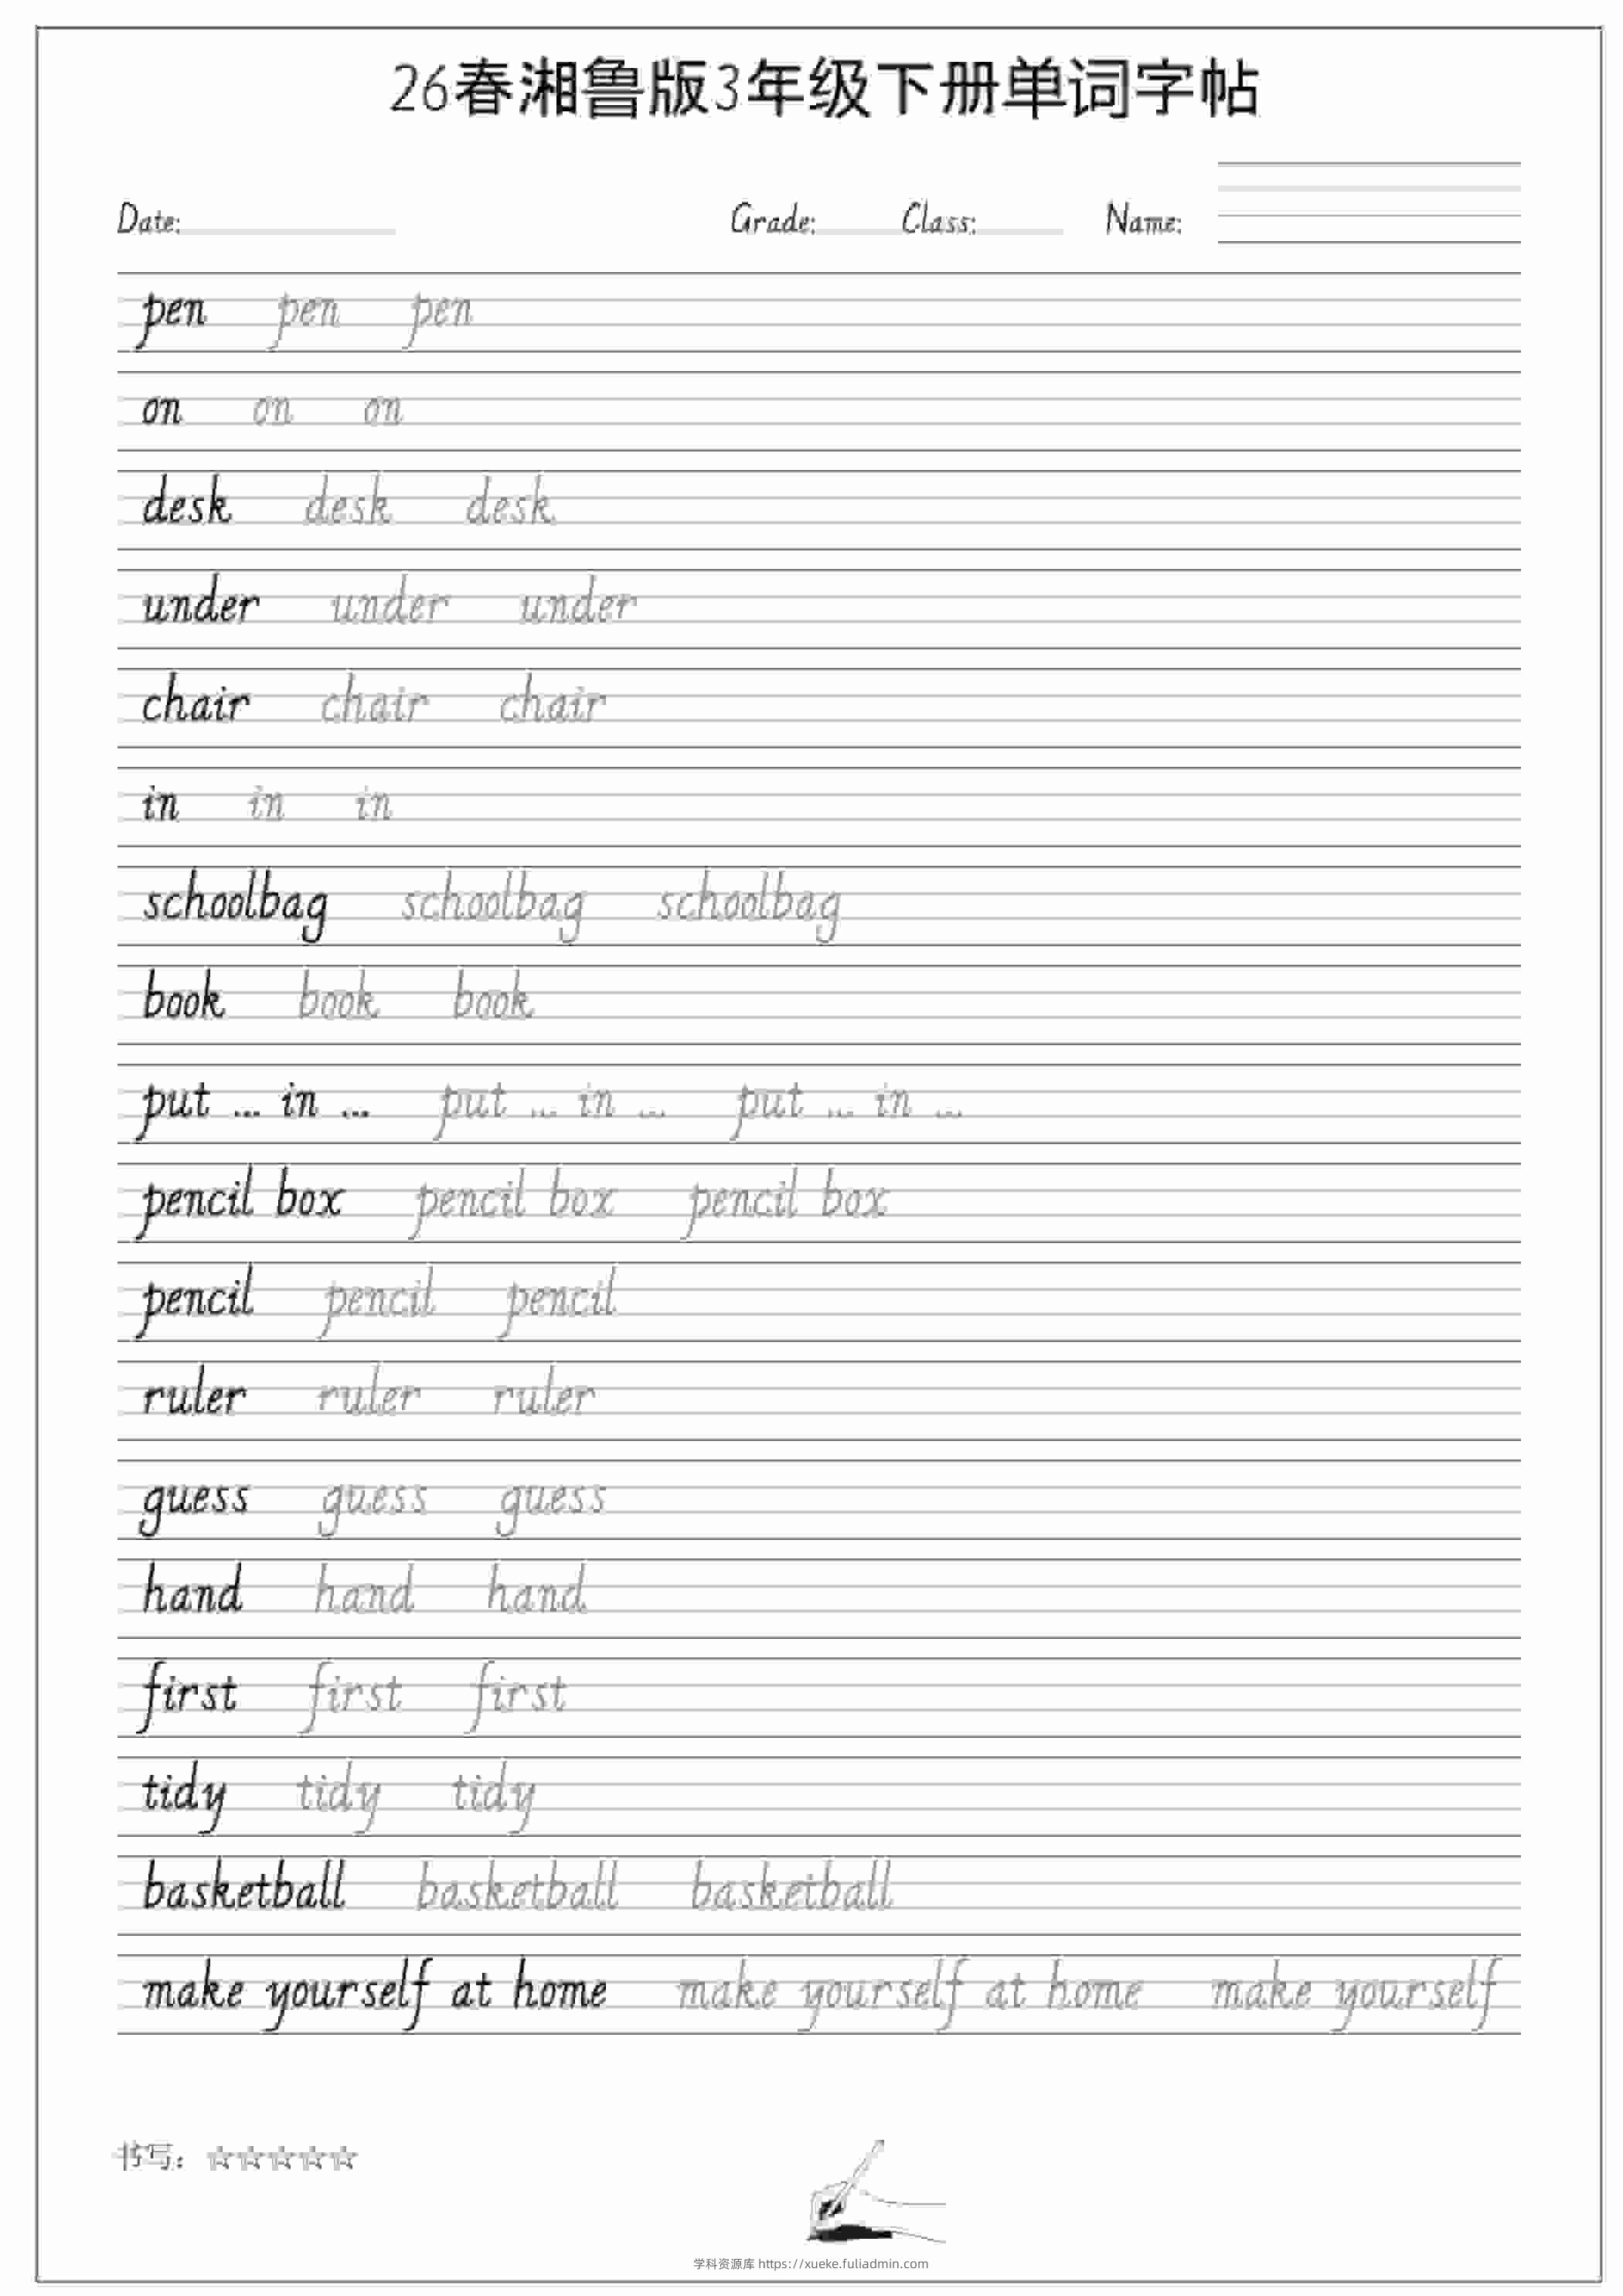 26春湘鲁版3年级下册单词字帖
Date: Grade: Class: Name:
pen pen pen
on on on
desk desk desk
under under under
chair chair chair
in in in
schoolbag schoolbag schoolbag
book book book
put ... in ... put ... in ... put ... in ...
pencil box pencil box pencil box
pencil pencil pencil
ruler ruler ruler
guess guess guess
hand hand hand
first first first
tidy tidy tidy
basketball basketball basketball
make yourself at home make yourself at home make yourself
书写：☆☆☆☆☆
学科资源库 https://xueke.fuliadmin.com